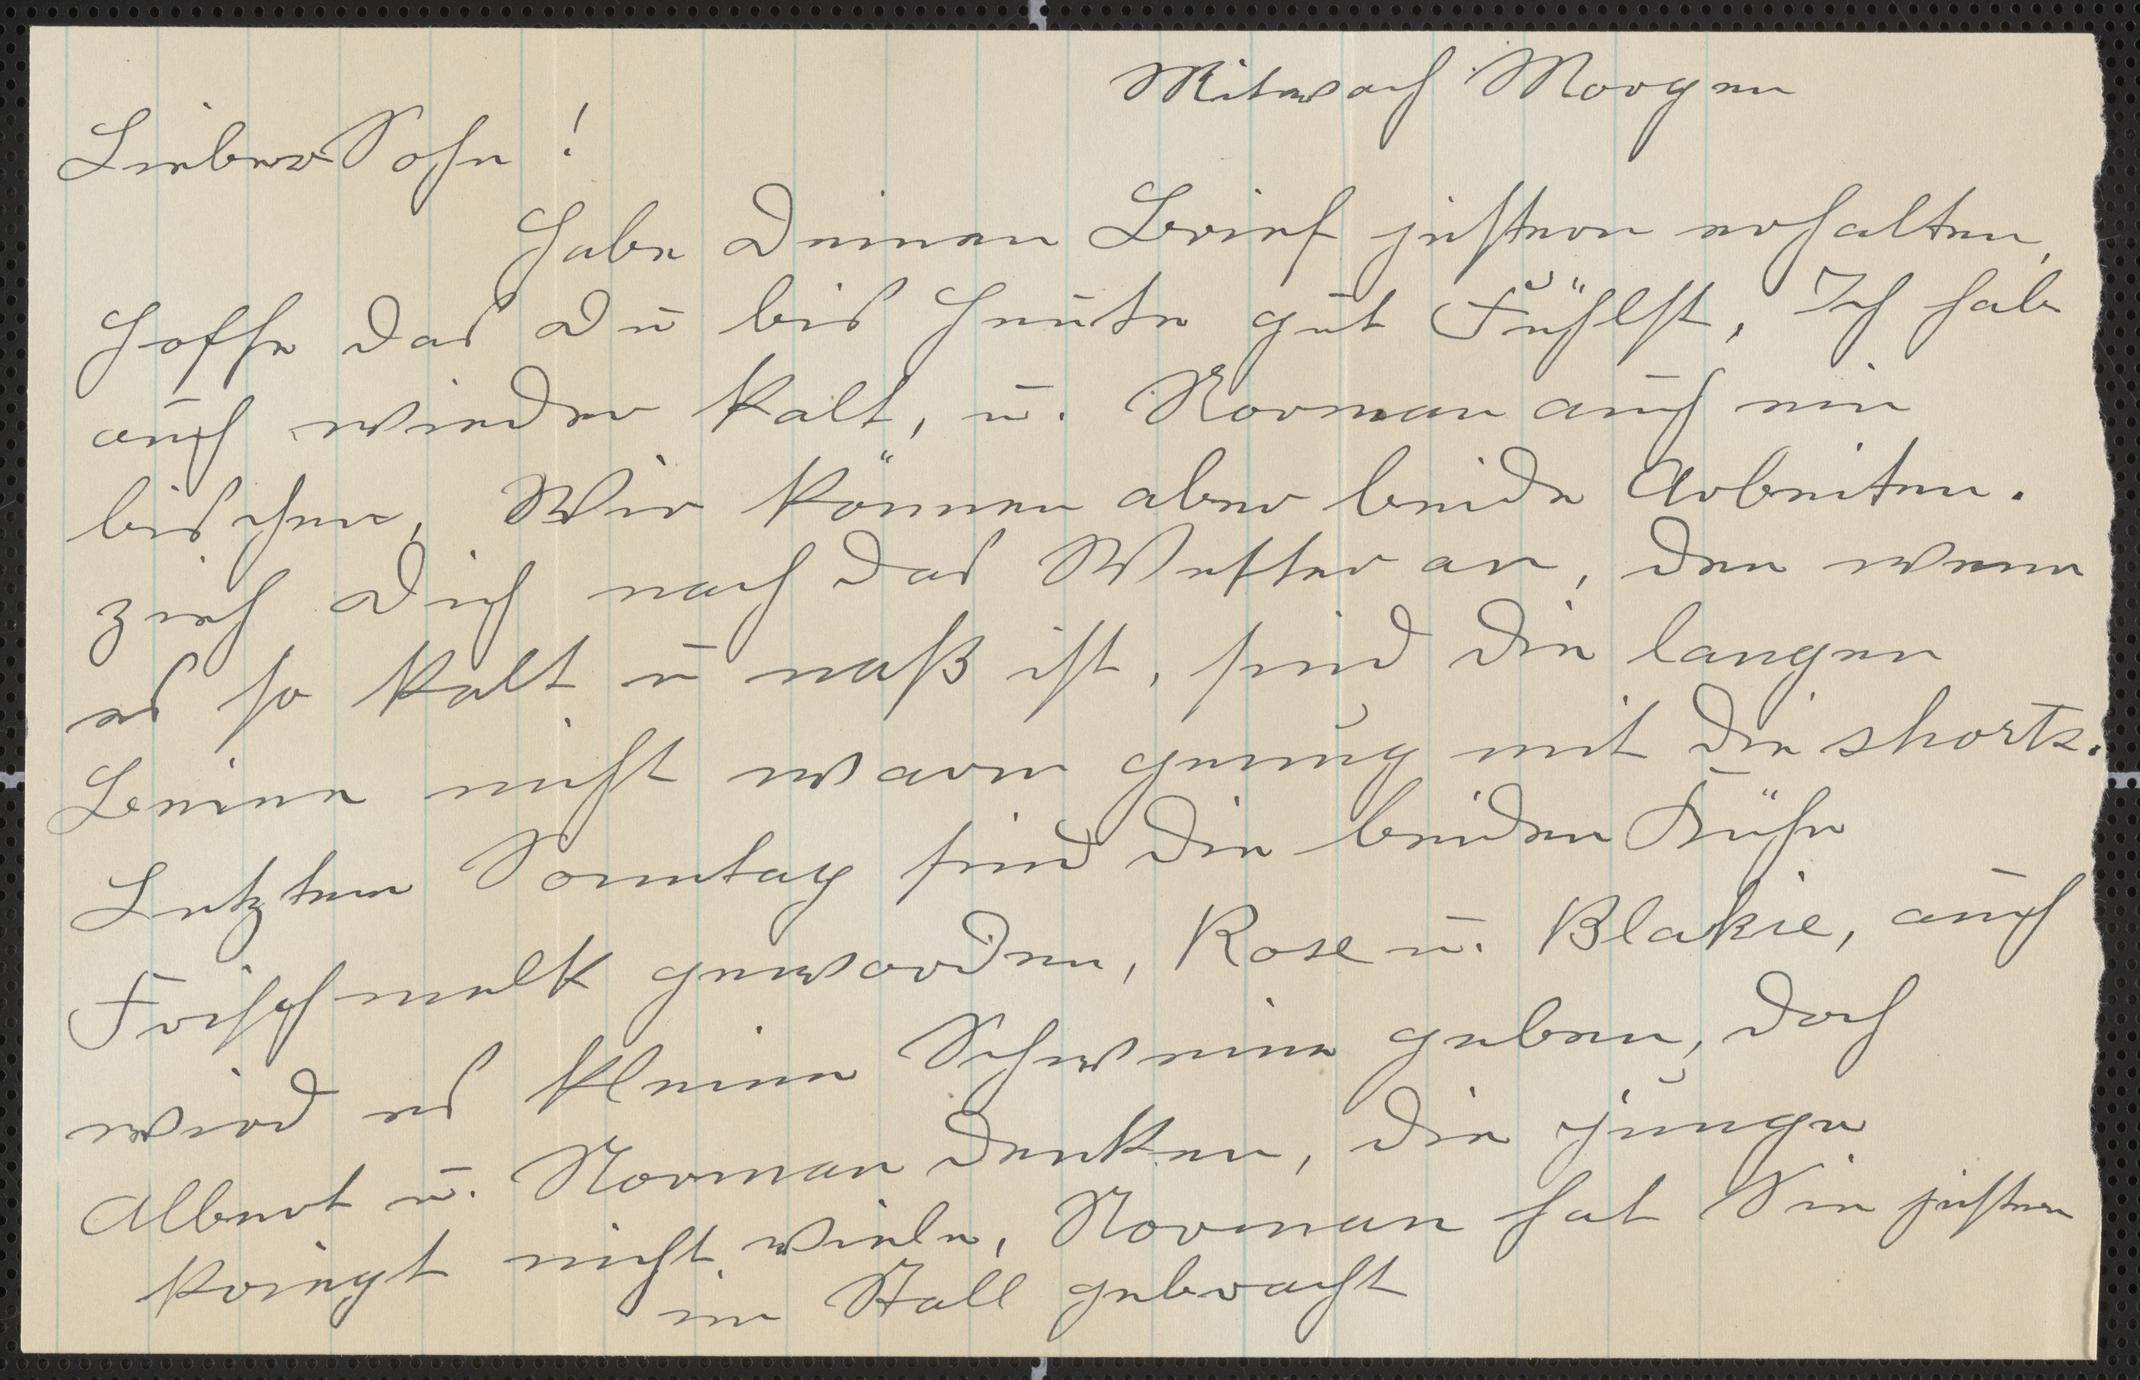 Mitwoch Morgen
Lieber Sohn !
Habe Deinen Brief jestern erhalten,
Hoffe das Du bis Heute gut Fühlst, Ich hab
auch wieder kalt, u. Norman auch ein
bischen, Wir können aber beide Arbeiten.
zieh Dich nach das Wetter an, den wenn
es so kalt u naß ist, sind die langen
Beine nicht warm genug mit die shorts.
Letzten Sonntag sind die beiden Kühe
Frisch melk geworden, Rose u. Blakie, auch
wird es kleine Schweine geben, doch
Albert u. Norman denken, die junge
kriegt nicht viele, Norman hat Sie jestern
im Stall gebracht